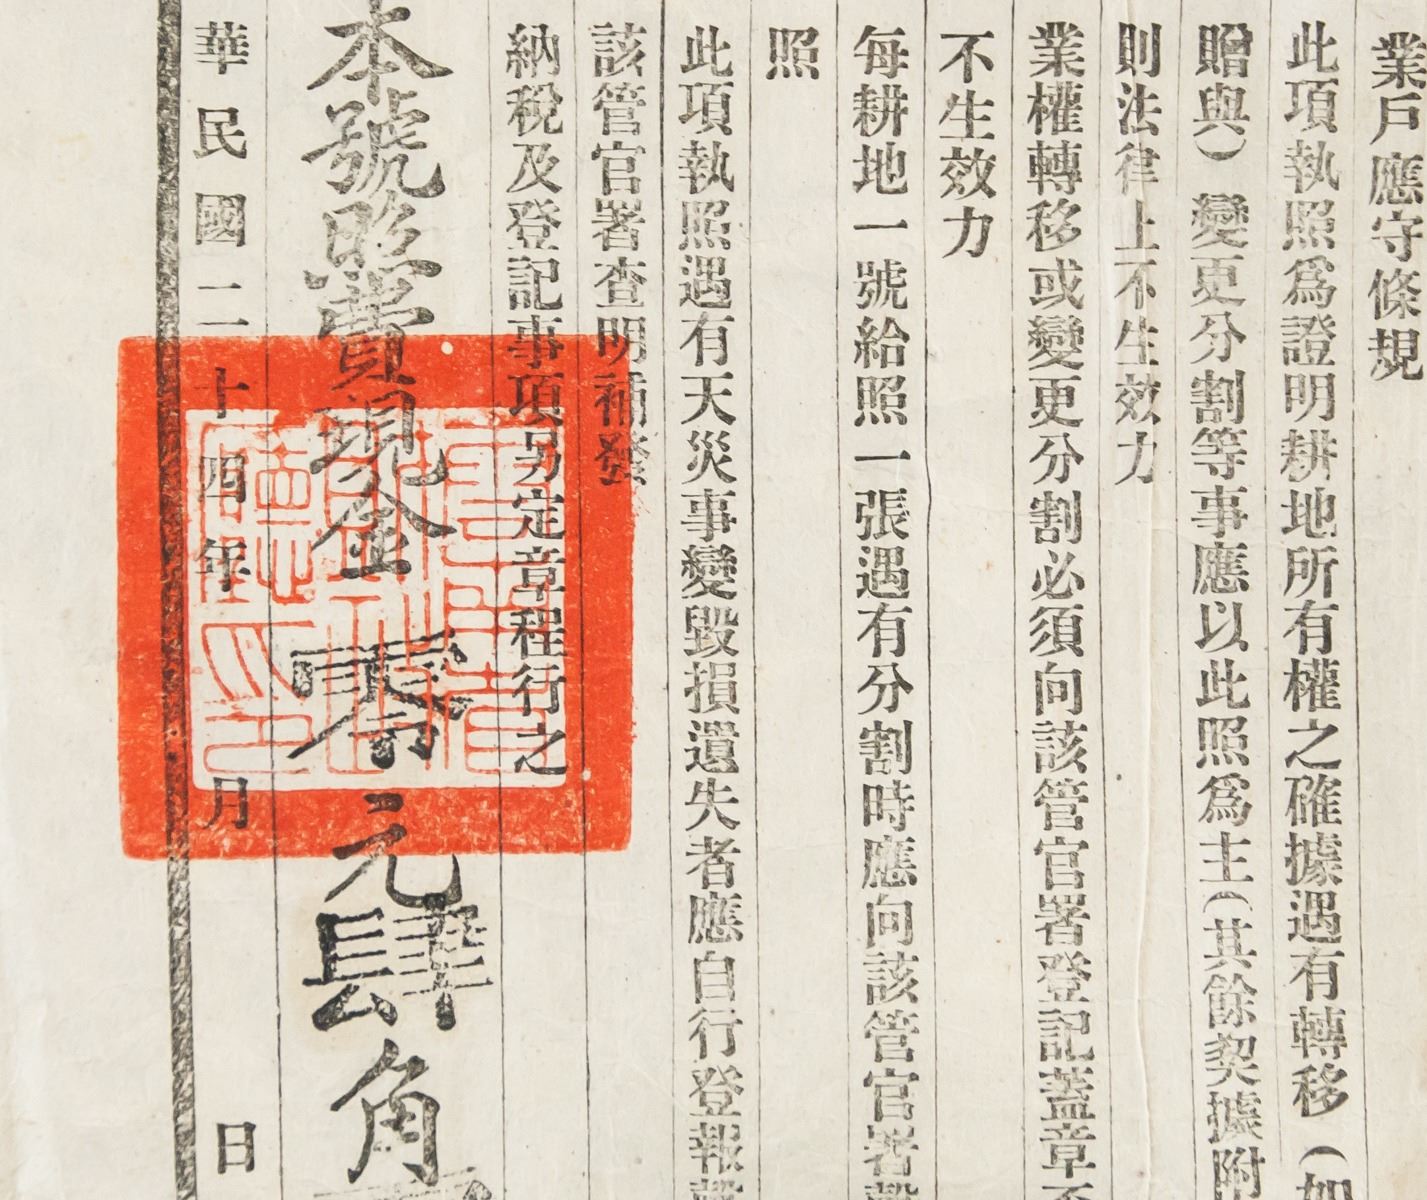 業戶應守條規
此項執照爲證明耕地所有權之確據遇有轉移（如
贈與）變更分割等事應以此照爲主（其餘契據附
則法律上不生效力
業權轉移或變更分割必須向該管官署登記蓋章不
不生效力
每耕地一號給照一張遇有分割時應向該管官署
照
此項執照遇有天災事變毀損遺失者應自行登報
該管官署查明補發
納稅及登記事項另定章程行之
本號照費現金零元肆角
華民國二十四年 月 日